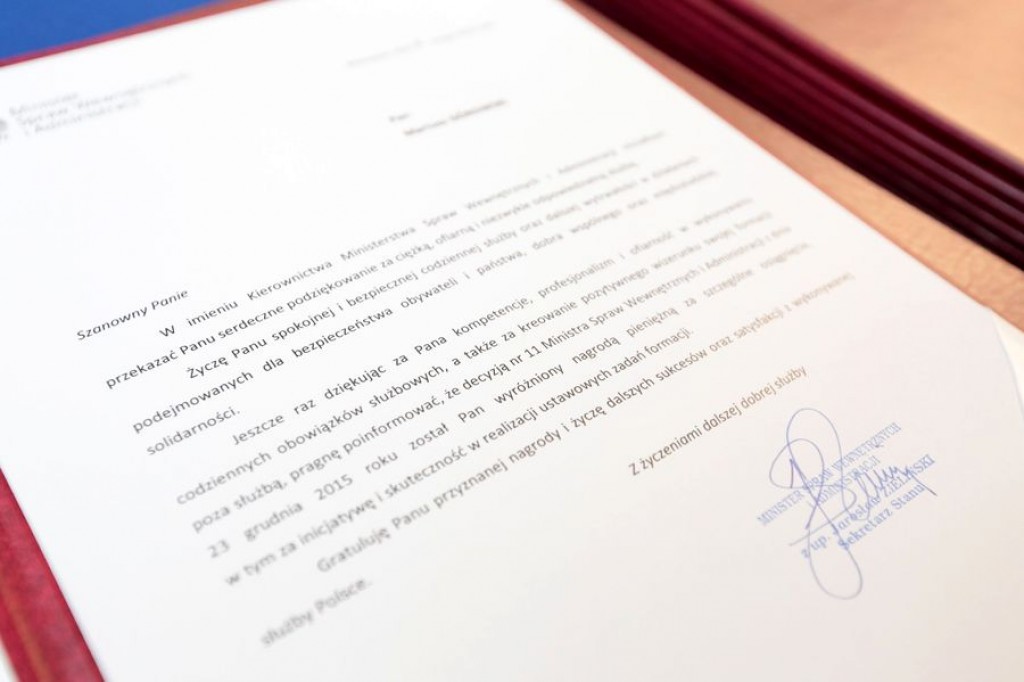 Minister
Spraw Wewnętrznych
i Administracji
Pan
Mariusz
Szanowny Panie
W imieniu Kierownictwa Ministerstwa Spraw Wewnętrznych i Administracji
przekazać Panu serdeczne podziękowanie za ciężką, ofiarną i niezwykle odpowiedzialną służbę.
Życzę Panu spokojnej i bezpiecznej codziennej służby oraz dalszej wytrwałości w działaniach
podejmowanych dla bezpieczeństwa obywateli i państwa, dobra wspólnego oraz
solidarności.
Jeszcze raz dziękując za Pana kompetencje, profesjonalizm i ofiarność w wykonywaniu
codziennych obowiązków służbowych, a także za kreowanie pozytywnego wizerunku swojej formacji
poza służbą, pragnę poinformować, że decyzją nr 11 Ministra Spraw Wewnętrznych i Administracji z dnia
23 grudnia 2015 roku został Pan wyróżniony nagrodą pieniężną za szczególne osiągnięcia,
w tym za inicjatywę i skuteczność w realizacji ustawowych zadań formacji.
Gratuluję Panu przyznanej nagrody i życzę dalszych sukcesów oraz satysfakcji z wykonywanej
służby Polsce.
Z życzeniami dalszej dobrej służby
MINISTER SPRAW WEWNĘTRZNYCH
I ADMINISTRACJI
z up. Jarosław ZIELIŃSKI
Sekretarz Stanu